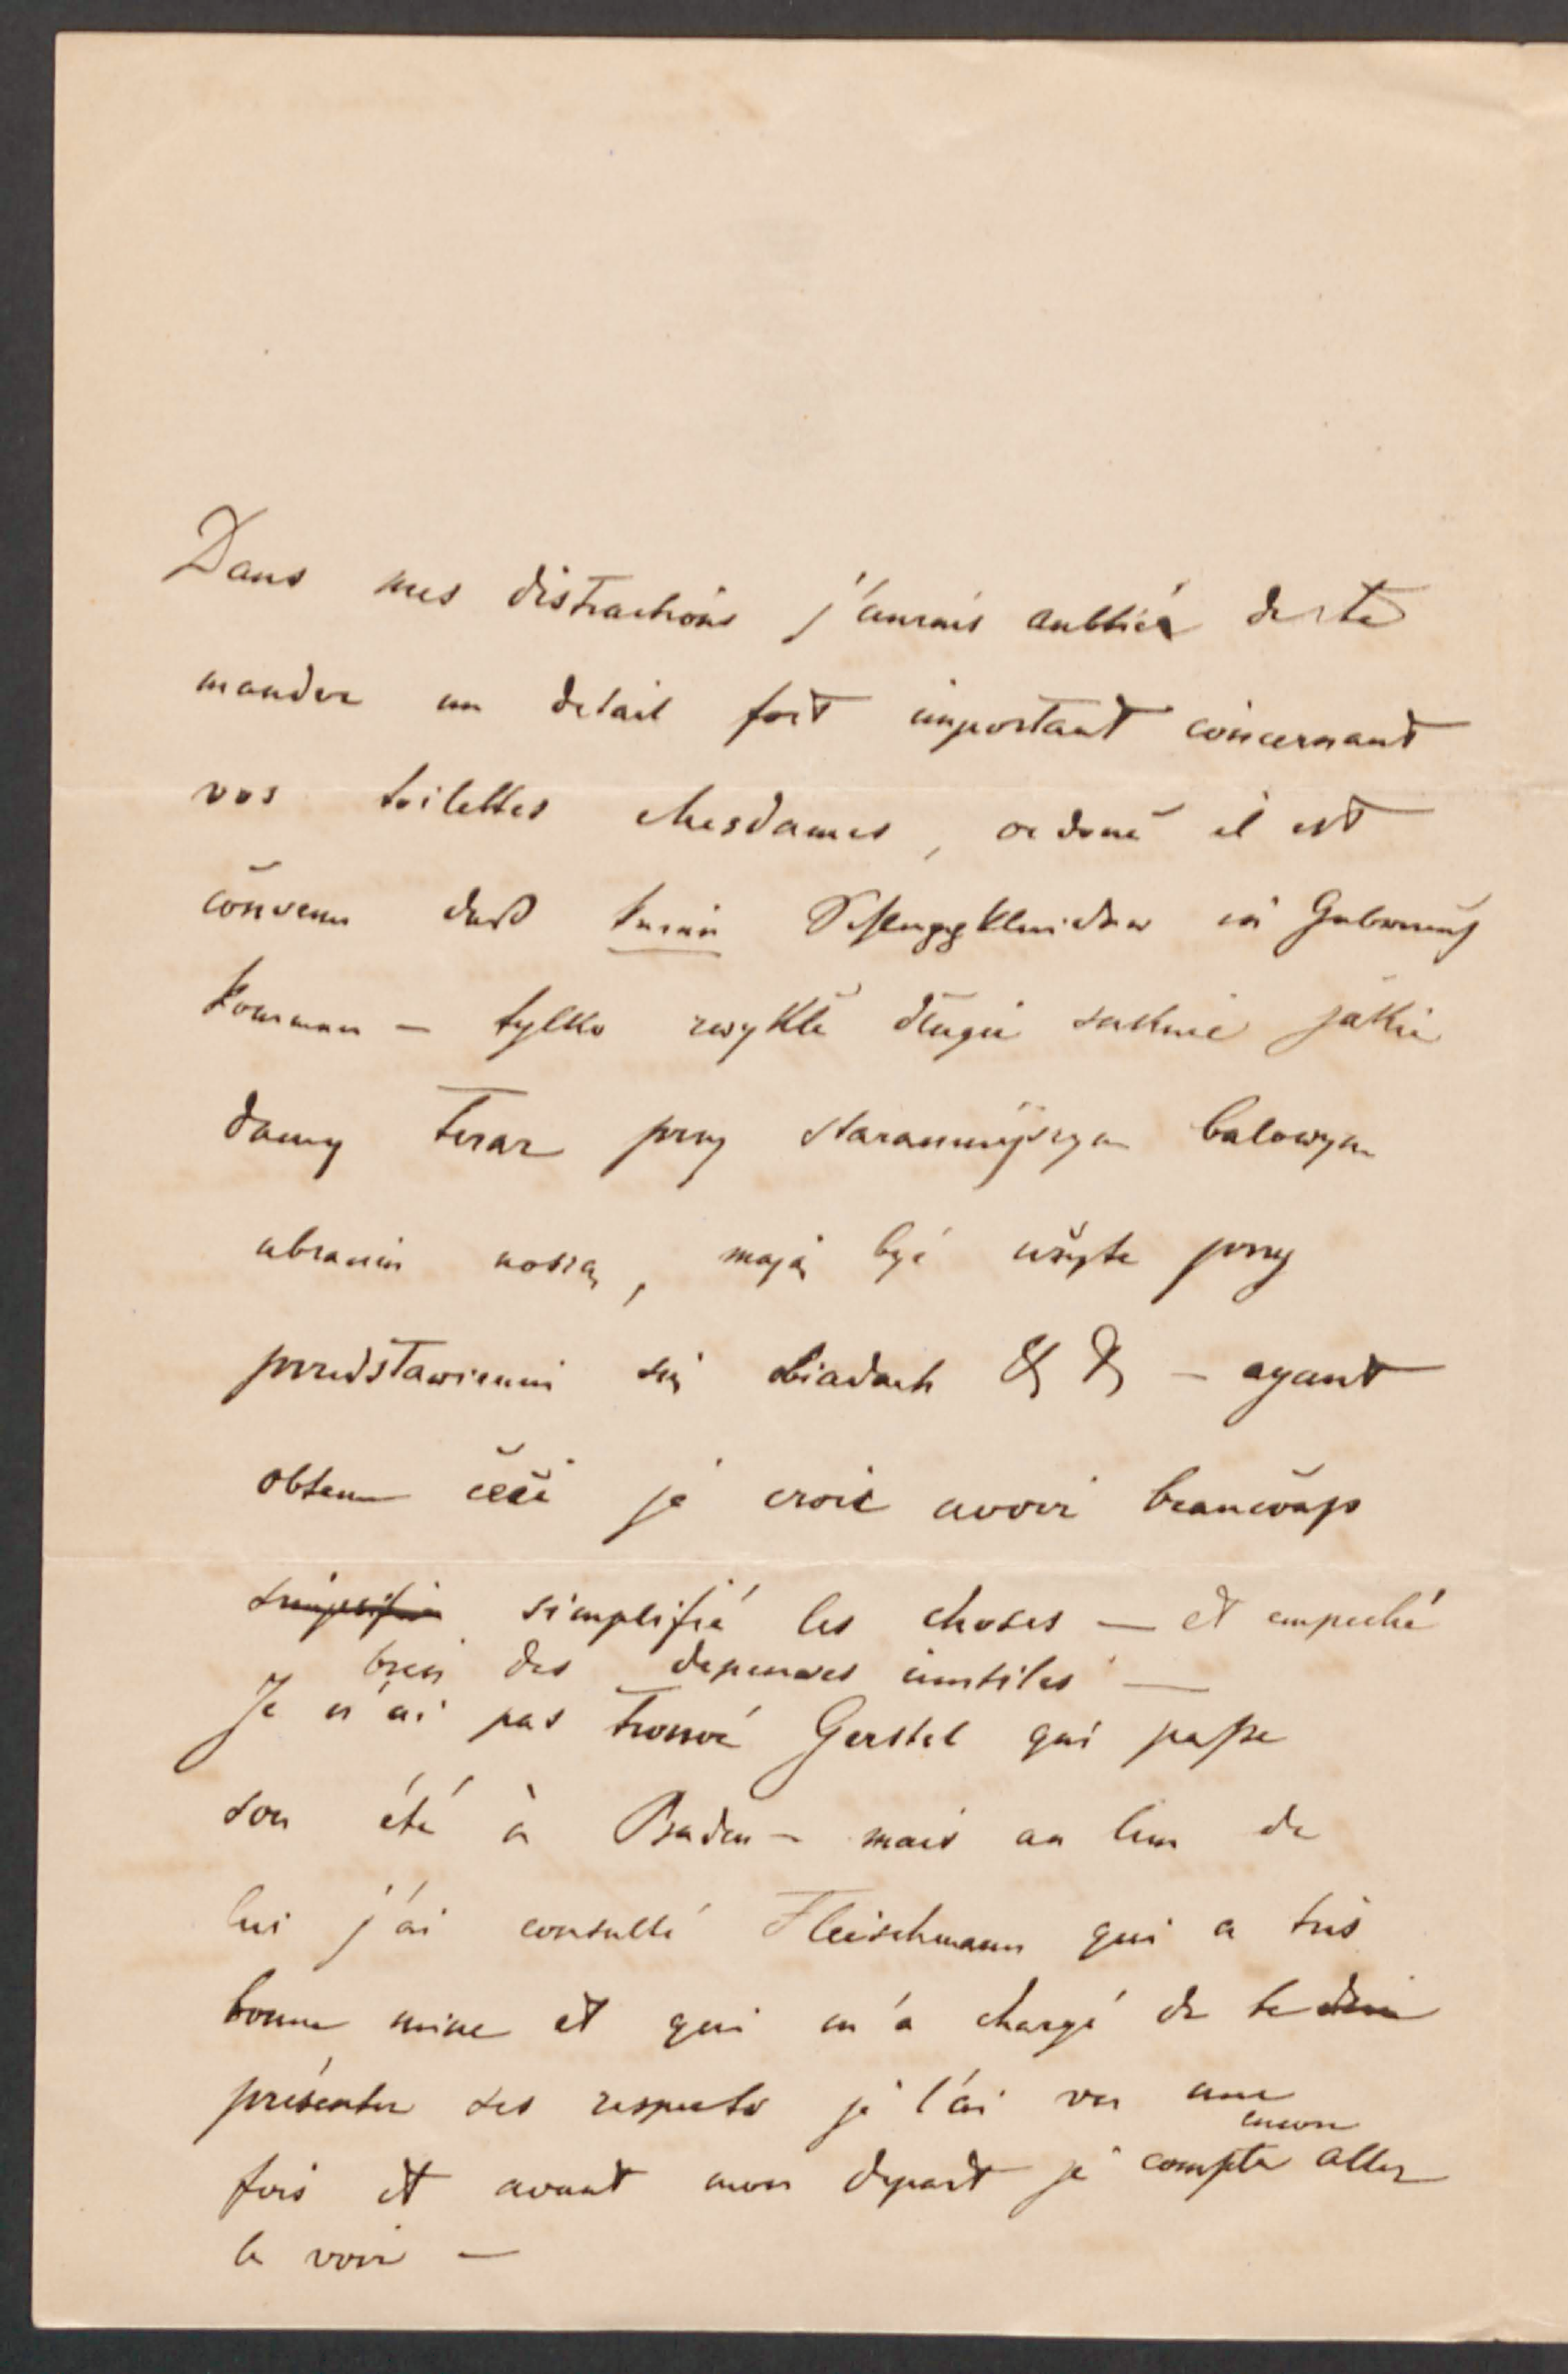 Dans mes distractions j'aurais oublié de te
mander un detail fort important concernant
vos toilettes Mesdames, or donc il est
convenu daß keine Schleppkleider in Gebrauch
kommen — tylko zwykłe długie suknie jakie
damy teraz przy staranniejszym balowym
ubraniu noszą, mają być użyte przy
przedstawieniu się obiadach & & — ayant
obtenu ceci je crois avoir beaucoup
simplifié les choses — et empeché
bien des depenses inutiles —
Je n'ai pas trouvé Gerstel qui passe
son été à Baden — mais au lieu de
lui j'ai consulté Fleischmann qui a très
bonne mine et qui m'a chargé de te
présenter ses respects je l'ai vu une
fois et avant mon depart je compte encore aller
le voir —